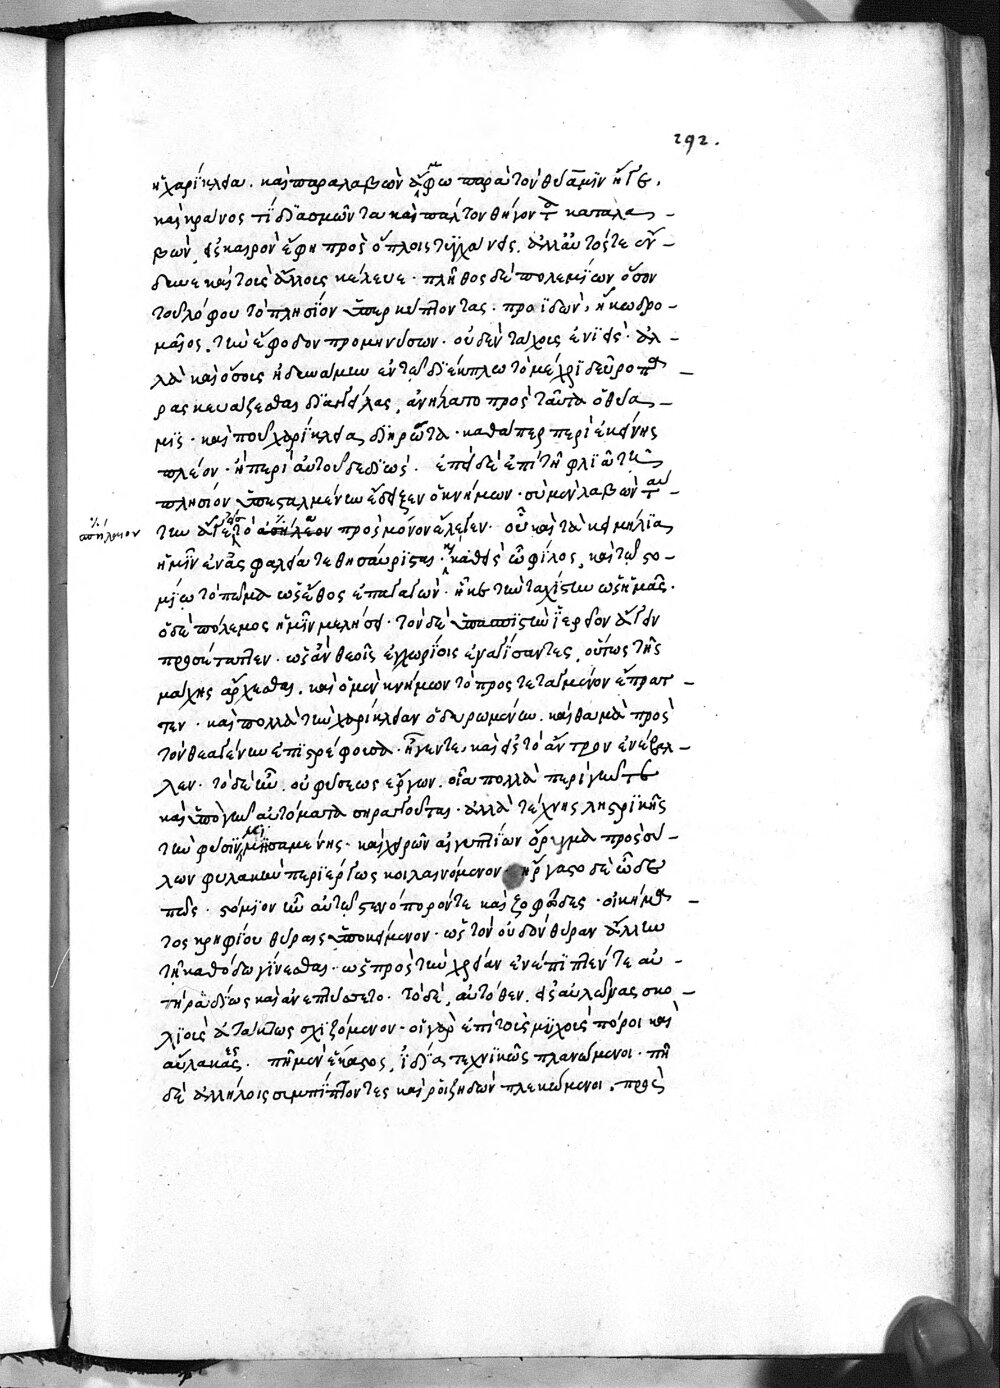 292.
ἡ χαρίκλεια. καὶ παραλαβὼν ἄμφω παρὰ τὸν θύαμιν ἦγε.
καὶ κράνος τὶ διασμῶντα καὶ παλτὸν θήγοντα καταλα-
βών, εἰς καιρὸν ἔφη πρὸς ὅπλοις τυγχάνεις. ἀλλ' αὐτός τε ἐν-
δυου καὶ τοῖς ἄλλοις κέλευε. πλῆθος δὲ πολεμίων ὅσον
τοῦ λόφου τὸ πλησίον ὑπερκύπτοντας. προϊδὼν, ἥκω δρο-
μαῖος. τὴν ἔφοδον προμηνύσων. οὐδὲν ταχους ἐνιεὶς. ἀλ-
λὰ καὶ ὅσοις ἠδυνάμην ἐν τῷ διέκπλῳ τὸ μέχρι δεῦρο πα-
ρασκευάζεσθαι διαγγείλας, ἀνήλατο πρὸς ταῦτα ὁ θύα-
μις. καὶ ποῦ χαρίκλεια διηρώτα. καθάπερ περὶ ἐκείνης
πλεῖον. ἢ περὶ αὑτοῦ δεδιὼς. ἐπεὶ δὲ ἐπὶ τῇ φλιᾷ τῇ
πλησίον ὑπεσταλμένην ἔδειξεν ὁ κνήμων. σὺ μὲν λαβὼν ταύ-
την ἄγε εἰς τὸ σπήλαιον πρὸς μόνον ἔλεγεν. οὗ καὶ τὰ κειμήλια
σπήλαιον
ἡμῖν ἐν ἀσφαλείᾳ τεθησαύρισται. καὶ καθεὶς ὦ φίλος, καὶ τῷ στο-
μίῳ τὸ πῶμα ὡς ἔθος ἐπαγαγὼν. ἧκε τὴν ταχίστην ὡς ἡμᾶς.
ὁ δὲ πόλεμος ἡμῖν μελήσει. τὸν δὲ ὑπασπιστὴν ἱερεῖον ἄγειν
προσέταττεν. ὡς ἂν θεοῖς ἐγχωρίοις ἐναγίσαντες, οὕτως τῆς
μάχης ἄρχεσθαι. καὶ ὁ μὲν κνήμων τὸ προστεταγμένον ἔπρατ-
τεν. καὶ πολλὰ τὴν χαρίκλειαν ὀδυρομένην. καὶ θαμὰ πρὸς
τὸν θεαγένην ἐπιστρέφουσα. ἦγέν τε, καὶ εἰς τὸ ἄντρον ἐνέβαλ-
λεν. τὸ δὲ ἦν. οὐ φύσεως ἔργον. οἷα πολλὰ περὶ γῆν τε
καὶ ὑπὸ γῆν αὐτόματα σηραγγοῦται. ἀλλὰ τέχνης λῃστρικῆς
τὴν φύσιν μιμησαμένης. καὶ χειρῶν αἰγυπτίων ὄρυγμα πρὸς σύ-
λων φυλακὴν περιέργως κοιλαινόμενον. εἴργαστο δὲ ὧδέ
πως. στόμιον ἦν αὐτῷ στενόπορόν τε καὶ ζοφῶδες. οἰκήμα-
τος κρυφίου θύραις ὑποκείμενον. ὡς τὸν οὐδὸν θύραν ἄλλην
τῇ καθόδῳ γίνεσθαι. ὡς πρὸς τὴν χρείαν ἐνέπιπτέν τε αὐ-
τῇ ῥᾳδίως καὶ ἀνεπτύσσετο. τὸ δὲ, αὐτόθεν. εἰς αὐλῶνας σκο-
λιοὺς ἀτάκτως σχιζόμενον. οἱ γὰρ ἐπὶ τοὺς μυχοὺς πόροι καὶ
αὔλακες. πῆ μὲν ἕκαστος, ἰδία τεχνικῶς πλανώμενοι. πῆ
δὲ ἀλλήλοις συμπίπτοντες καὶ ῥιζηδὸν πλεκόμενοι. πρὸς